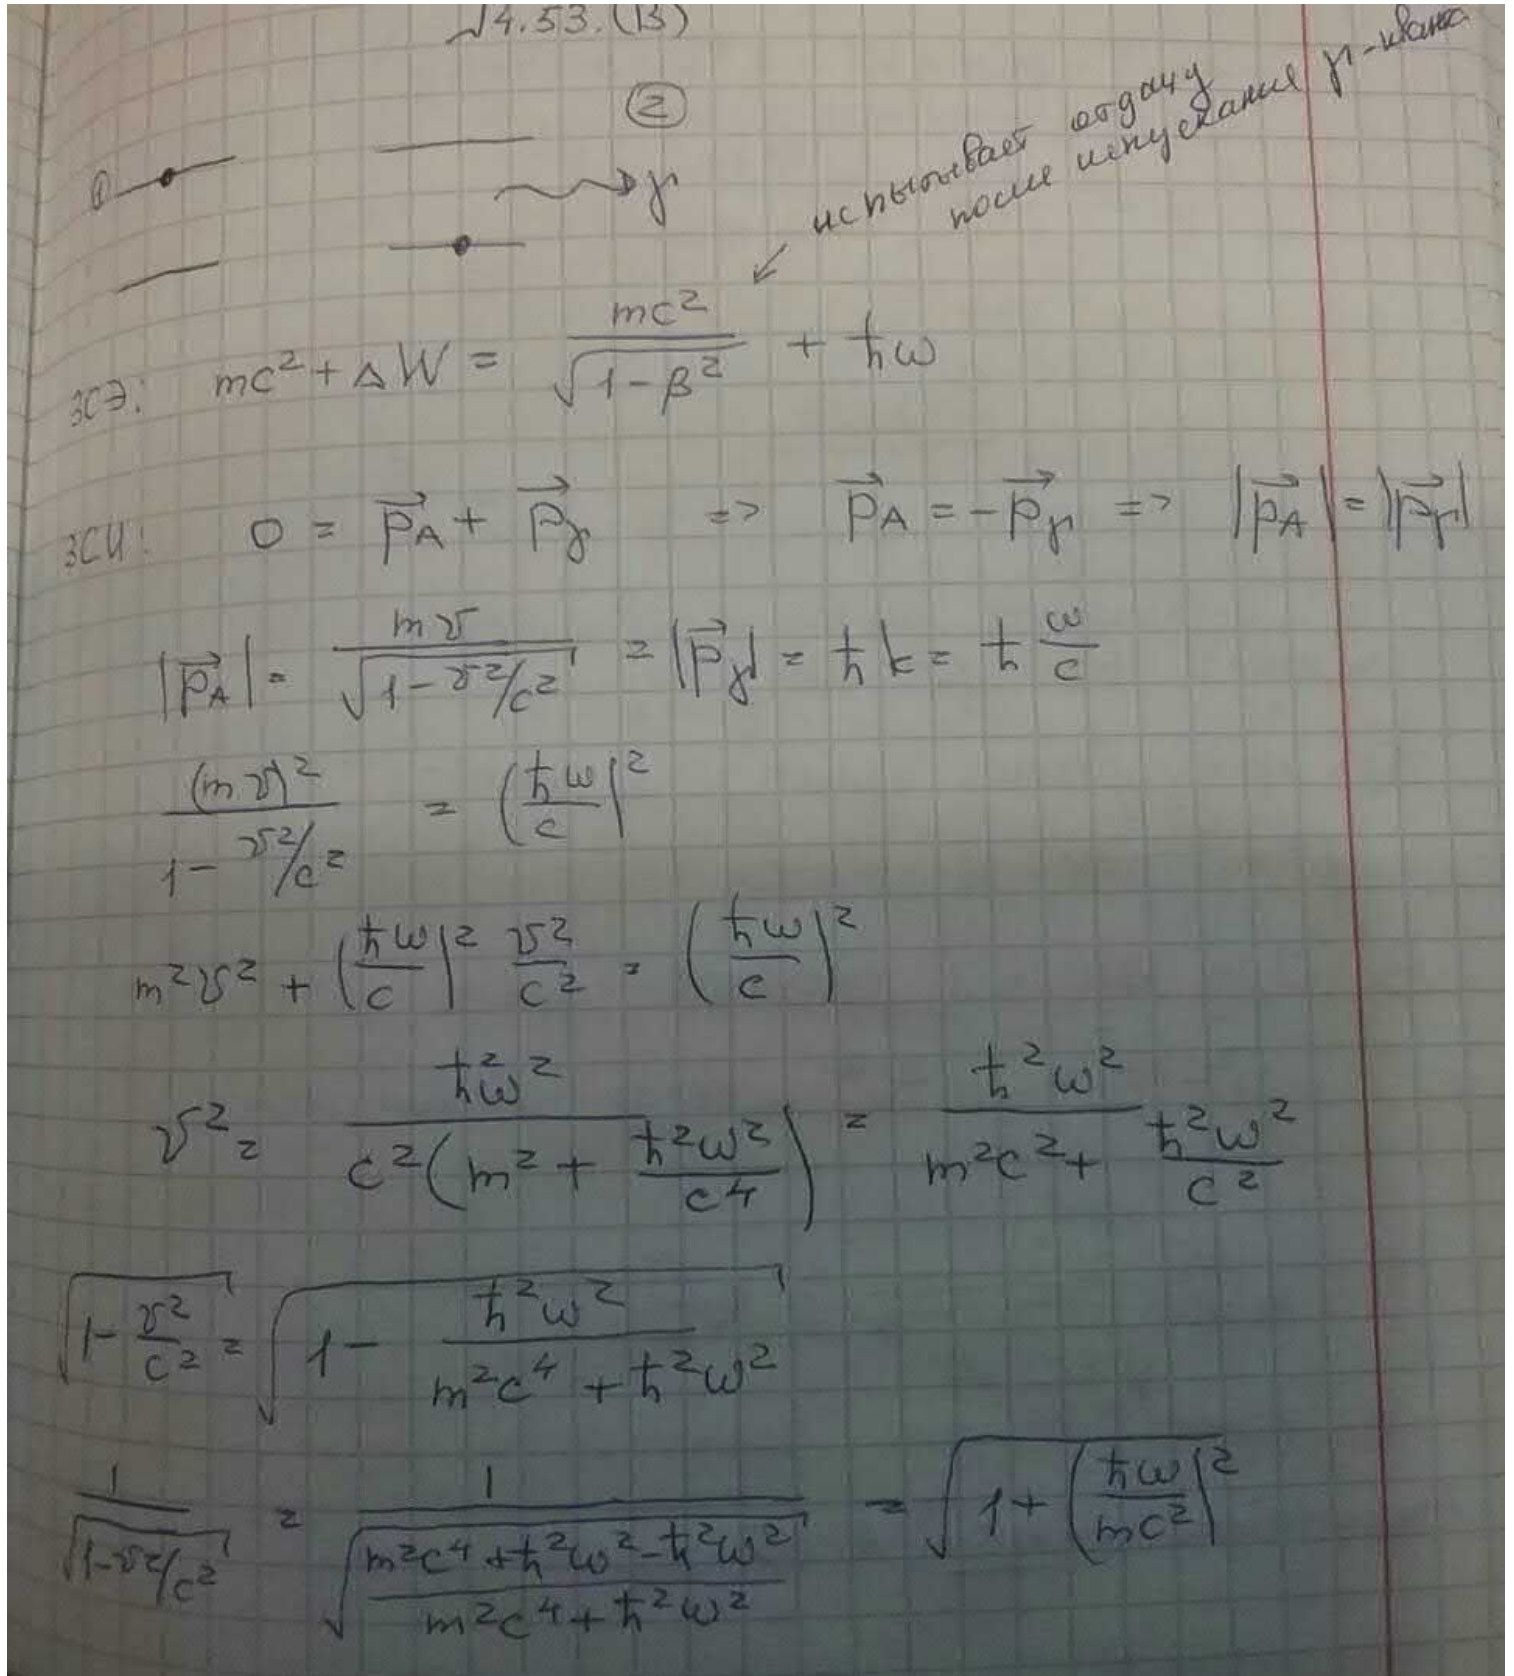 √4.53.(B)
②
①
γ
испытывает отдачу
после испускания γ-кванта
ЗСЭ: mc² + ΔW = mc²/√(1-β²) + ħω
ЗСИ: 0 = p⃗_A + p⃗_γ => p⃗_A = -p⃗_γ => |p⃗_A| = |p⃗_γ|
|p⃗_A| = mv/√(1-v²/c²) = |p⃗_γ| = ħk = ħ ω/c
(mv)²/(1-v²/c²) = (ħω/c)²
m²v² + (ħω/c)² v²/c² = (ħω/c)²
v² = ħ²ω²/(c²(m² + ħ²ω²/c⁴)) = ħ²ω²/(m²c² + ħ²ω²/c²)
√(1-v²/c²) = √(1 - ħ²ω²/(m²c⁴ + ħ²ω²))
1/√(1-v²/c²) = 1/√((m²c⁴+ħ²ω²-ħ²ω²)/(m²c⁴+ħ²ω²)) = √(1+(ħω/mc²)²)